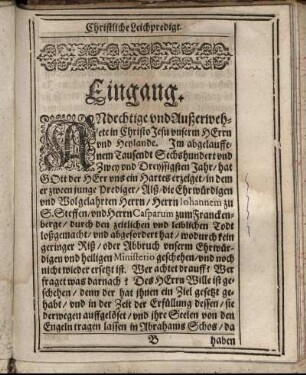 Christliche Leichpredigt.
Eingang.
ANdechtige vnd Außerweh-
lete in Christo Jesu vnserm HErrn
vnd Heylande. Im abgelauffe-
nem Tausendt Sechshundert vnd
Zwey vnd Dreyssigsten Jahr / hat
GOtt der HErr vns ein Hartes erzeiget / in dem
er zween junge Prediger / Alß / die Ehrwürdigen
vnd Wolgelahrten Herrn / Herrn Iohannem zu
S. Steffen / vnd Herrn Casparum zum Francken-
berge / durch den zeitlichen vnd leiblichen Todt
loßgemacht / vnd abgefordert hat / wodurch kein
geringer Riß / oder Abbruch vnserm Ehrwür-
digen vnd heiligen Ministerio geschehen / vnd noch
nicht wieder ersetzt ist. Wer achtet drauff? Wer
fraget was darnach? Des HErrn Wille ist ge-
schehen / denn der hat jhnen ein Ziel gesetzt ge-
habt / vnd in der Zeit der Erfüllung dessen / sie
derwegen auffgelöset / vnd jhre Seelen von
den Engeln tragen lassen in Abrahams Schos / da
B
haben